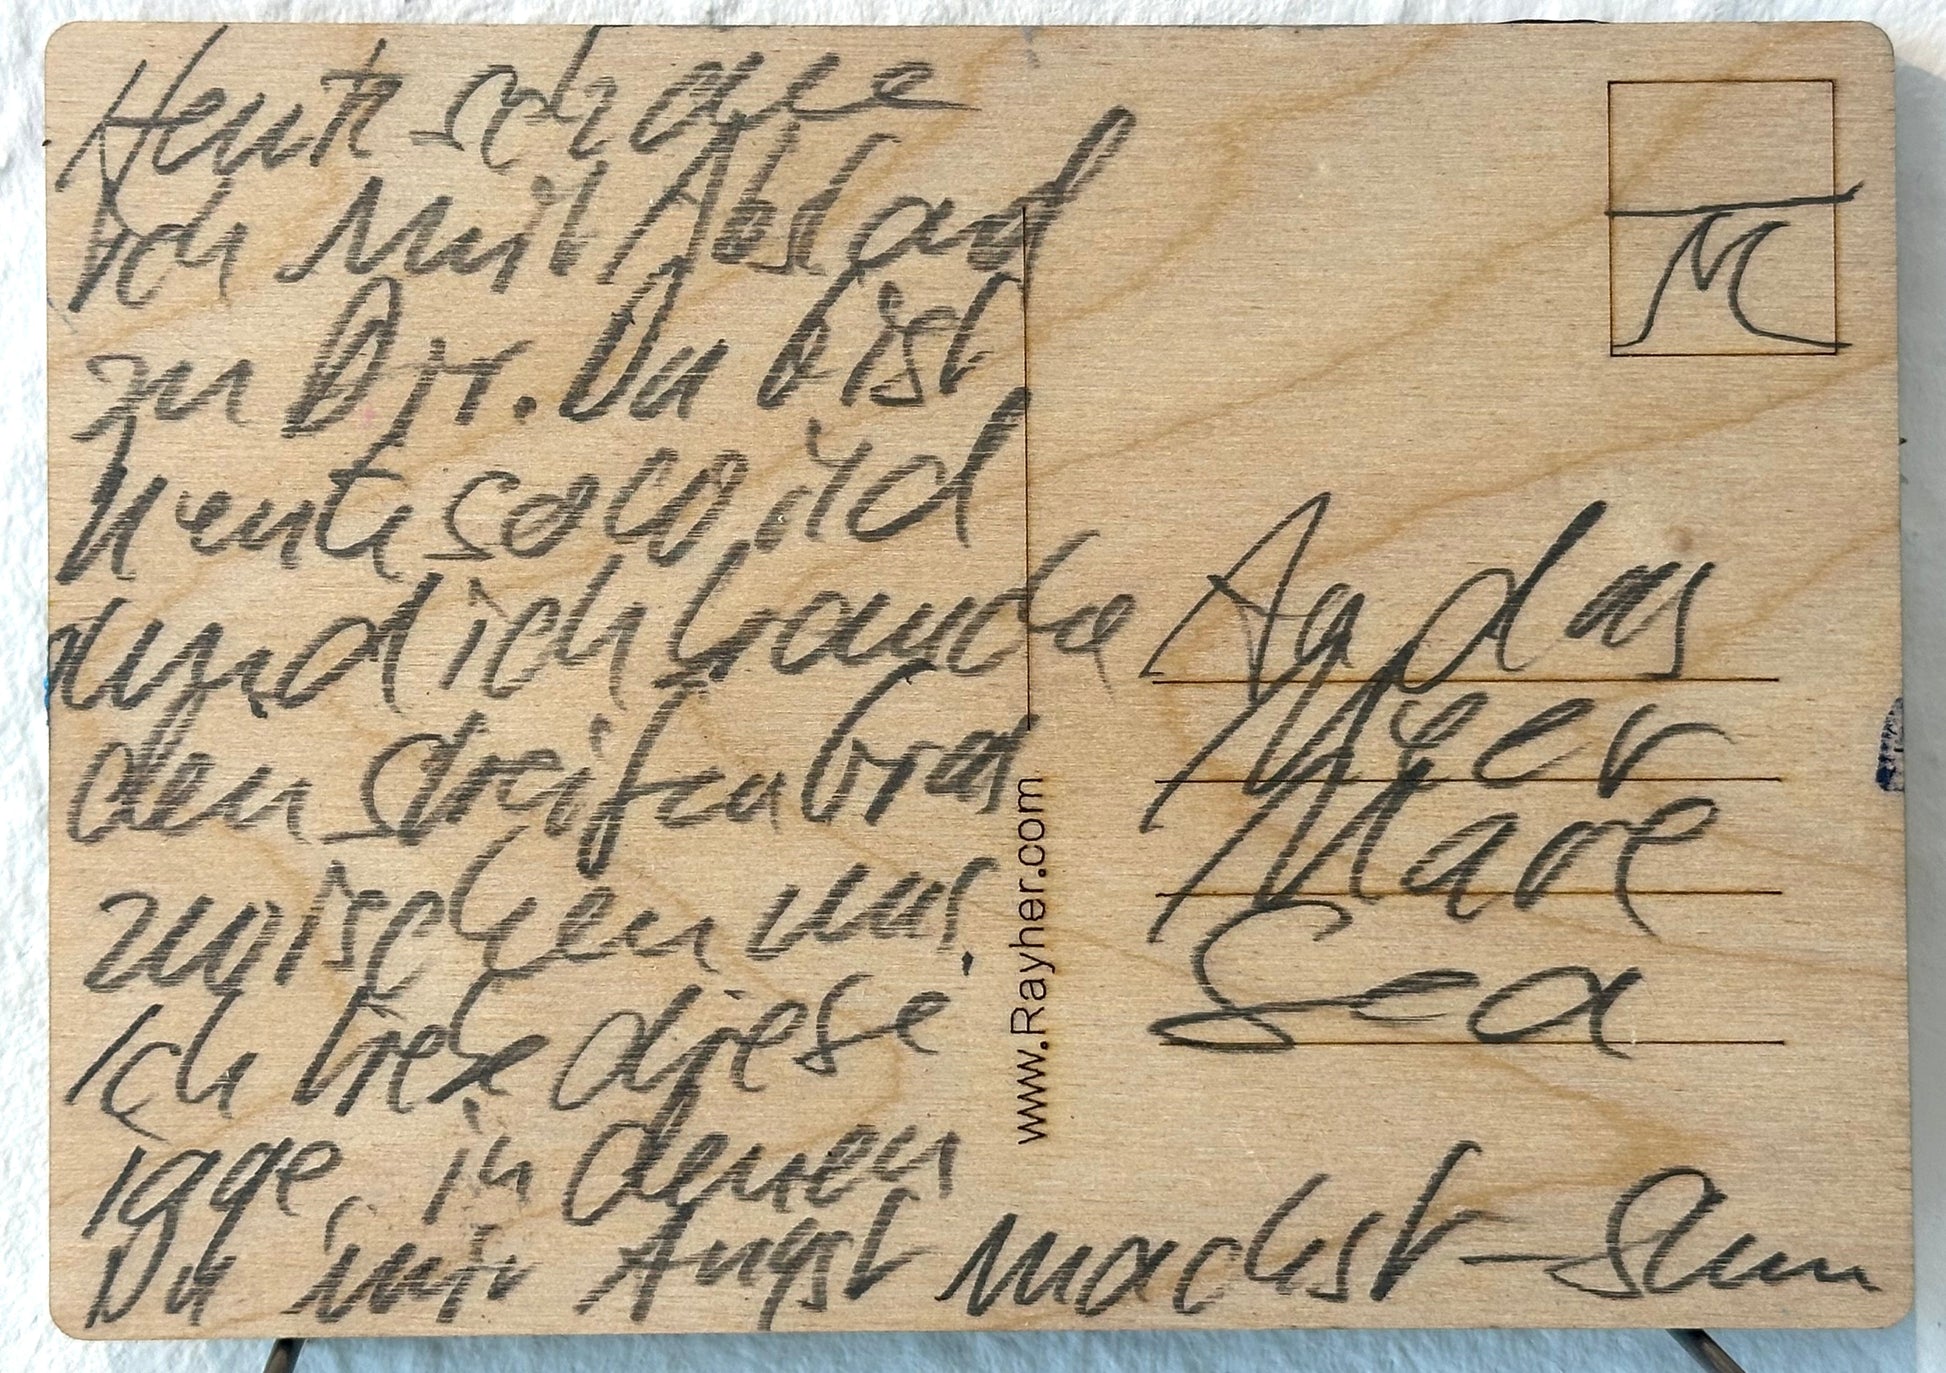 Heute schaue
ich mit Abstand
zu Dir. Du bist
heute so wild
und ich brauche
den Streifen Gras
zwischen uns.
Ich liebe diese
Tage, in denen
Du mir Angst machst
An das
Meer
Mare
Sea
M
www.Rayher.com